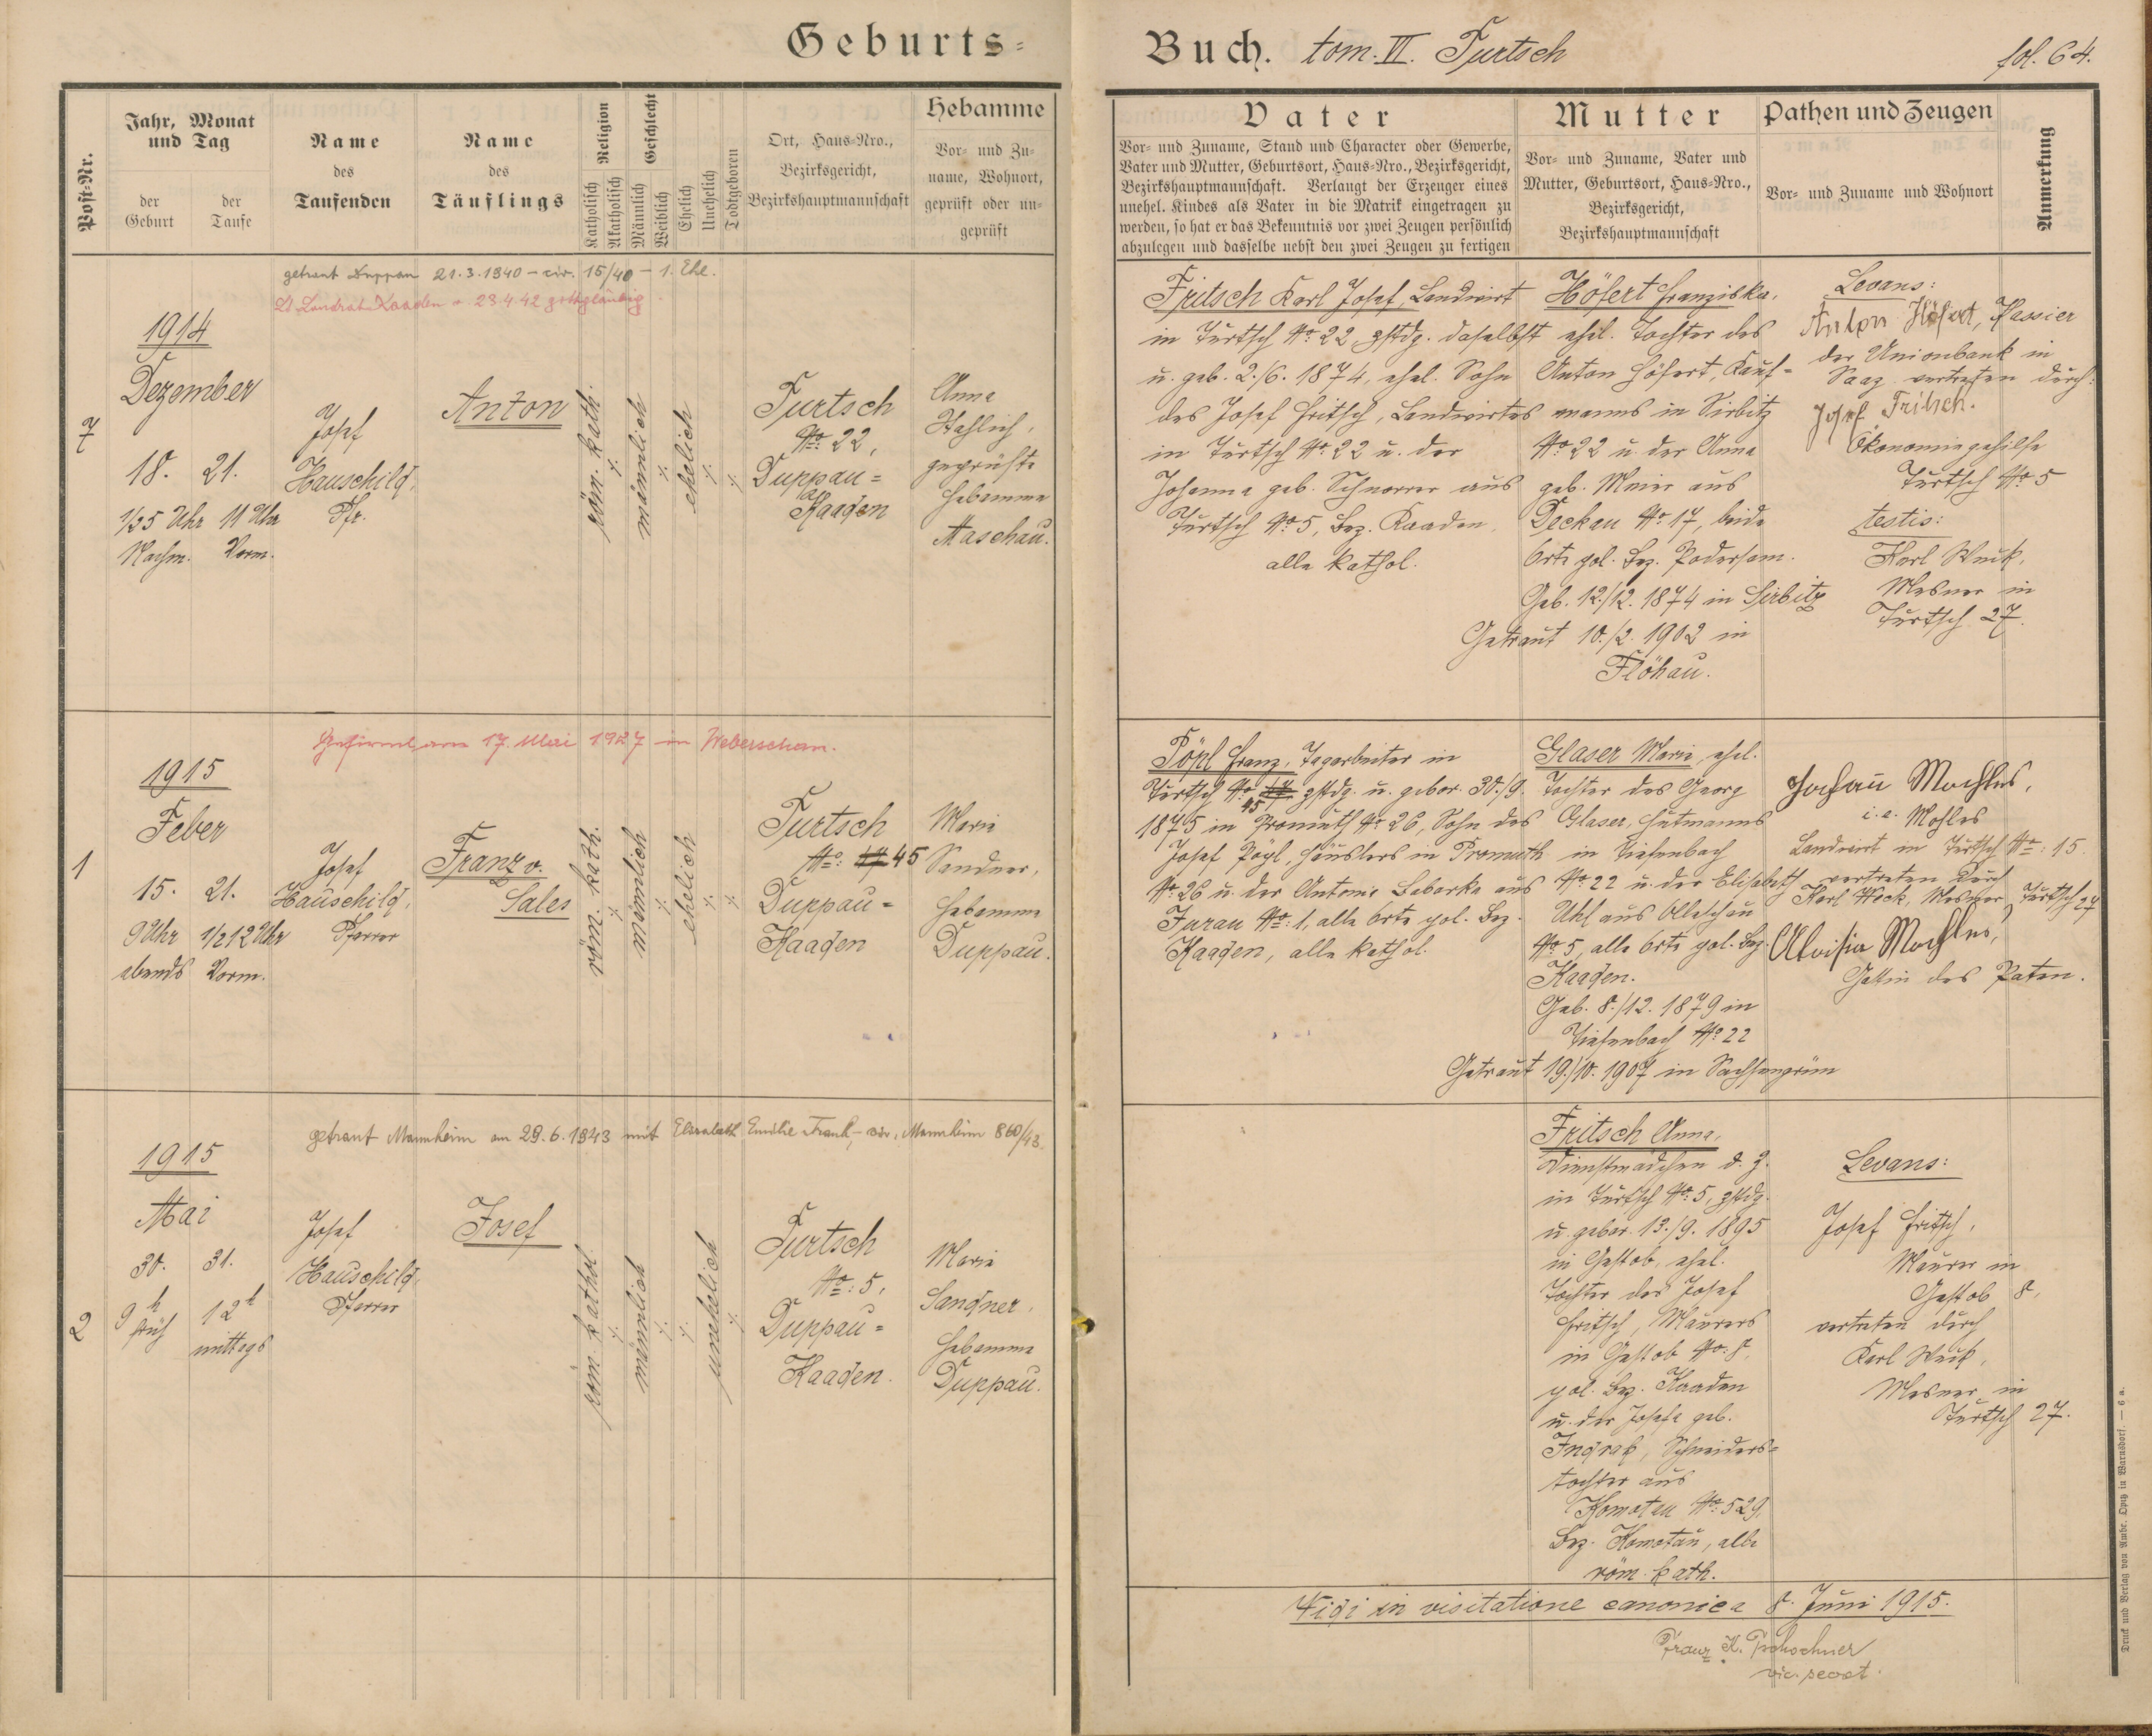 Geburts=
Post-Nr.
Jahr, Monat
und Tag
der
Geburt
der
Taufe
Name
des
Taufenden
Name
des
Täuflings
Religion
Katholisch
Akatholisch
Geschlecht
Männlich
Weiblich
Ehelich
Unehelich
Todtgeboren
Ort, Haus-Nro.,
Bezirksgericht,
Bezirkshauptmannschaft
Hebamme
Vor- und Zu-
name, Wohnort,
geprüft oder un-
geprüft
getraut Duppau 21.3.1940 – civ. 15/40 – 1. Ehe.
Lt. Landrat Kaaden v. 23.4.42 gottgläubig
7
1914
Dezember
18. 21.
1/25 Uhr 11 Uhr
Nachm. Vorm.
Josef
Hauschild,
Pfr.
Anton
röm. kath.
männlich
ehelich
Turtsch
No. 22,
Duppau=
Kaaden
Anna
geprüfte
Hebamme
Maschau.
Gefirmt am 17. Mai 1927 in Weberschan.
1
1915
Feber
15. 21.
9 Uhr 1/212 Uhr
abends Vorm.
Josef
Hauschild,
Pfarrer
Franz v.
Sales
röm. kath.
männlich
ehelich
Turtsch
No: 45
Duppau=
Kaaden
Marie
Sandner,
Hebamme
Duppau.
getraut Mannheim am 29.6.1943 mit Elisabeth Emilie Frank, – civ. Mannheim 860/43.
2
1915
Mai
30. 31.
9h 12h
früh mittags
Josef
Hauschild,
Pfarrer
Josef
röm. kathol.
männlich
unehelich
Turtsch
No: 5,
Duppau=
Kaaden.
Marie
Sandner,
Hebamme
Duppau.
Buch. tom. VI. Turtsch
fol. 64.
Vater
Vor- und Zuname, Stand und Character oder Gewerbe,
Vater und Mutter, Geburtsort, Haus-Nro., Bezirksgericht,
Bezirkshauptmannschaft. Verlangt der Erzeuger eines
unehel. Kindes als Vater in die Matrik eingetragen zu
werden, so hat er das Bekenntnis vor zwei Zeugen persönlich
abzulegen und dasselbe nebst den zwei Zeugen zu fertigen
Mutter
Vor- und Zuname, Vater und
Mutter, Geburtsort, Haus-Nro.,
Bezirksgericht,
Bezirkshauptmannschaft
Pathen und Zeugen
Vor- und Zuname und Wohnort
Anmerkung
Fritsch Karl Josef, Landwirt
in Turtsch No. 22, zstdg. daselbst
u. geb. 2./6. 1874, ehel. Sohn
des Josef Fritsch, Landwirtes
in Turtsch No. 22 u. der
Johanna geb. Schnorrer aus
Turtsch No. 5, Bez. Kaaden,
alle kathol.
Höfert Franziska,
ehel. Tochter des
Anton Höfert, Kauf=
manns in Sirbitz
No. 22 u. der Anna
geb. Meier aus
Deckau No. 17, beide
Orte pol. Bez. Podersam.
Geb. 12./12. 1874 in Sirbitz
Getraut 10./2. 1902 in
Flöhau.
Levans:
Anton Höfert, Kassier
der Unionbank in
Saaz vertreten durch:
Josef Fritsch.
Ökonomiegehilfe
Turtsch No. 5
testis:
Karl Weck,
Mesner in
Turtsch 27.
Pöpl Franz, Tagarbeiter in
Turtsch No. 45 zstdg. u. gebor. 30./9.
1875 in Promuth No. 26, Sohn des
Josef Pöpl, Häuslers in Promuth
No. 26 u. der Antonie Beberka aus
Jurau No: 1, alle Orte pol. Bez.
Kaaden, alle kathol.
Glaser Marie, ehel.
Tochter des Georg
Glaser, Hutmanns
in Tiefenbach
No. 22 u. der Elisabeth
Uhl aus Olleschau
No. 5, alle Orte pol. Bez.
Kaaden.
Geb. 8./12. 1879 in
Tiefenbach No. 22
Getraut 19./10. 1907 in Sachsengrün
Johann Mochles,
i.e. Mohles
Landwirt in Turtsch No: 15.
vertreten durch
Karl Weck, Mesner, Turtsch 27
Aloisia Mochles,
Gattin des Paten.
Fritsch Anna,
Dienstmädchen d. Z.
in Turtsch No: 5, zstdg.
u. gebor. 13./9. 1895
in Gestob, ehel.
Tochter des Josef
Fritsch, Maurers
in Gestob No. 8,
pol. Bez. Kaaden
u. der Josefa geb.
Ingrak, Schneiders=
tochter aus
Komotau No: 529,
Bez. Komotau, alle
röm. kath.
Levans:
Josef Fritsch,
Maurer in
Gestob 8,
vertreten durch
Karl Weck,
Mesner in
Turtsch 27.
Vidi in visitatione canonica 8. Juni 1915.
Franz K. Tschochner
vic. secret.
Druck und Verlag von Ambr. Opitz in Warnsdorf. — 6 a.